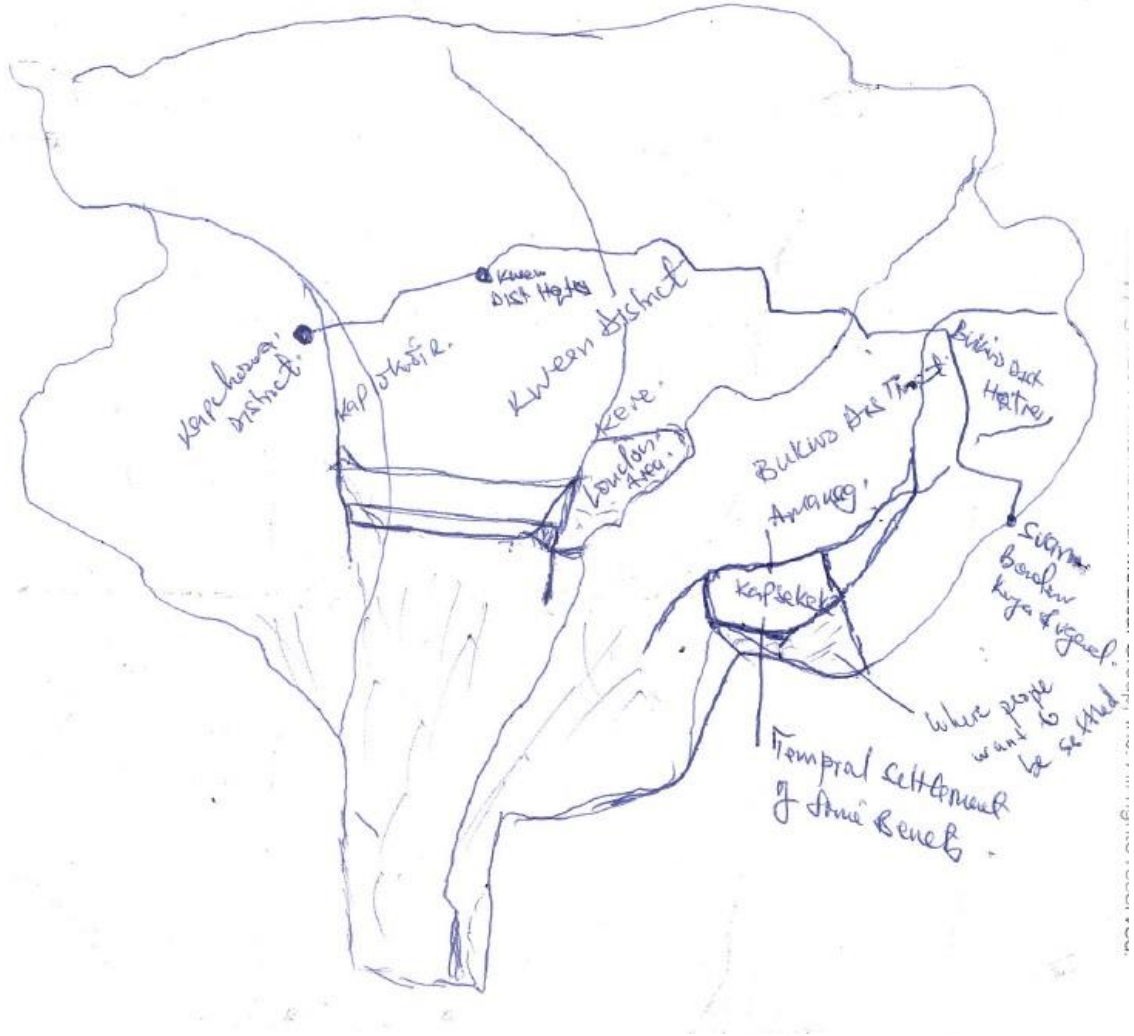 Kween
Dist Hqtrs
Kapchorwa
District.
Kapkokoir.
Kween District
Kere.
London
Area.
Bukwo District
Amanag.
Bukwo Dist
Hqtrs
Kapsekek
Suam
Border
Kenya & Uganda.
where people
want to
be settled
Tempral Settlement
of Some Benets.
Inc. All rights reserved.